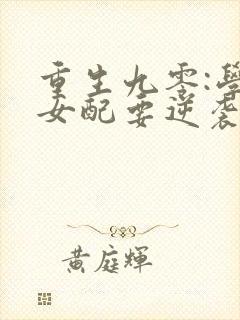 重生九零:學
女配要逆袭
黃庭輝